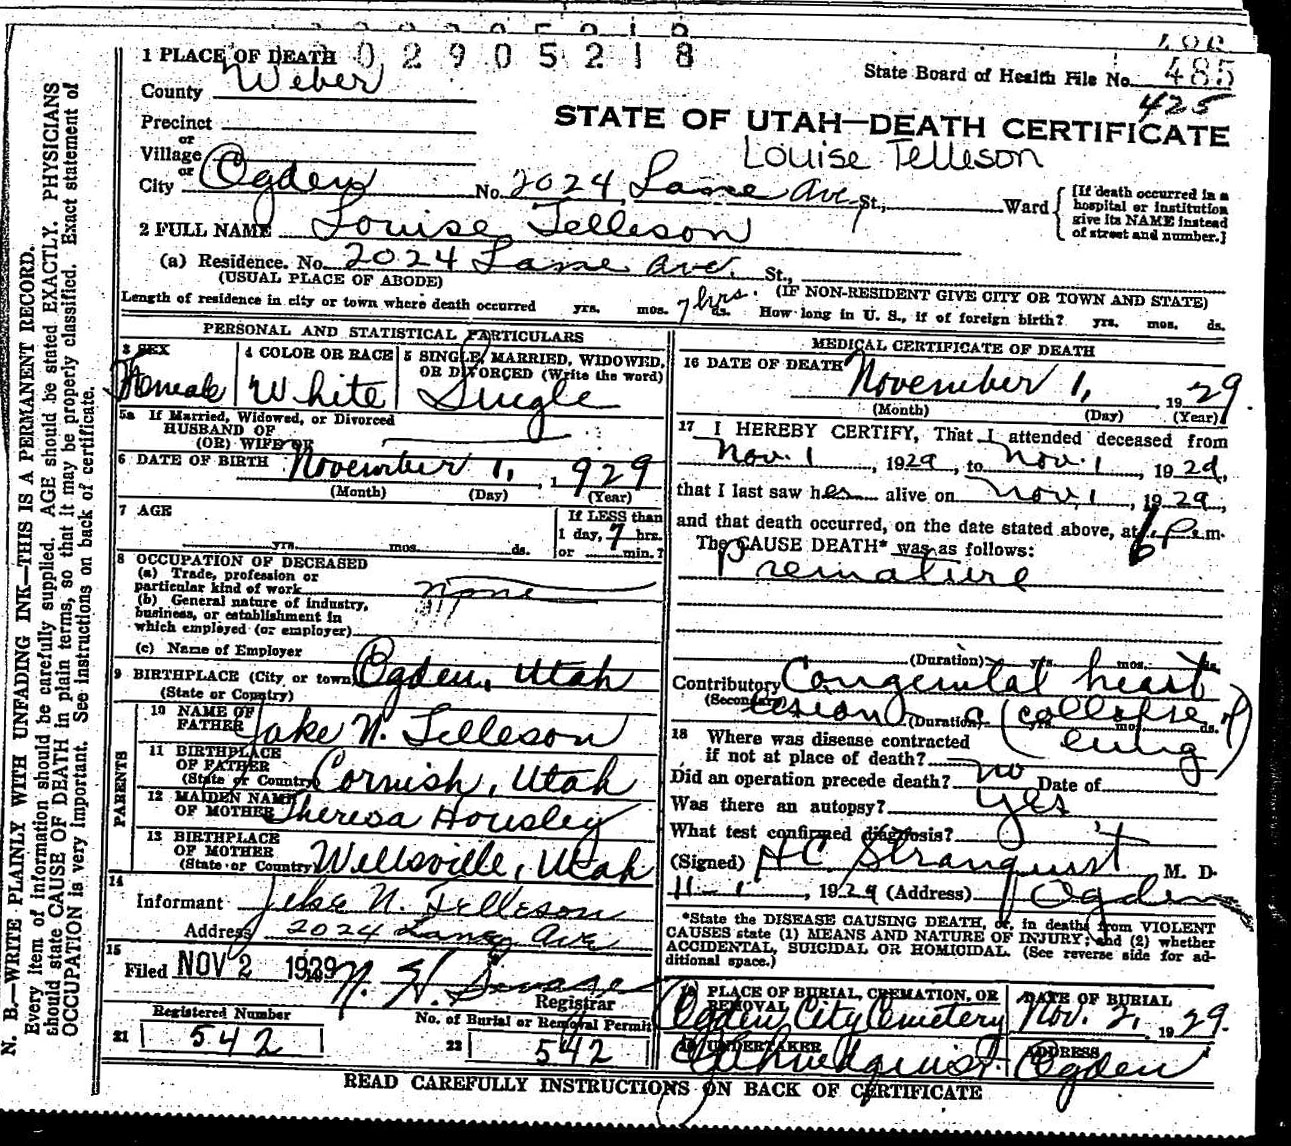 02905218
1 PLACE OF DEATH
County Weber
State Board of Health File No. 485
425
Precinct
or
Village
or
City Ogden No. 2024 Lane Ave. St., Ward
STATE OF UTAH—DEATH CERTIFICATE
Louise Telleson
[If death occurred in a
hospital or institution
give its NAME instead
of street and number.]
2 FULL NAME Louise Telleson
(a) Residence. No. 2024 Lane Ave. St.,
(USUAL PLACE OF ABODE) (IF NON-RESIDENT GIVE CITY OR TOWN AND STATE)
Length of residence in city or town where death occurred yrs. mos. 7 hrs. ds. How long in U. S., if of foreign birth? yrs. mos. ds.
PERSONAL AND STATISTICAL PARTICULARS
3 SEX Female
4 COLOR OR RACE White
5 SINGLE, MARRIED, WIDOWED,
OR DIVORCED (Write the word)
Single
5a If Married, Widowed, or Divorced
HUSBAND OF
(OR) WIFE OF
6 DATE OF BIRTH November 1, 1929
(Month) (Day) (Year)
7 AGE yrs. mos. ds.
If LESS than
1 day, 7 hrs.
or min.?
8 OCCUPATION OF DECEASED
(a) Trade, profession or
particular kind of work none
(b) General nature of industry,
business, or establishment in
which employed (or employer)
(c) Name of Employer
9 BIRTHPLACE (City or town) Ogden, Utah
(State or Country)
PARENTS
10 NAME OF
FATHER Jake N. Telleson
11 BIRTHPLACE
OF FATHER
(State or Country) Cornish, Utah
12 MAIDEN NAME
OF MOTHER Theresa Housley
13 BIRTHPLACE
OF MOTHER
(State or Country) Wellsville, Utah
14
Informant Jake N. Telleson
Address 2024 Lane Ave
15
Filed NOV 2 1929 N. H. Savage
Registrar
Registered Number
21 542
No. of Burial or Removal Permit
22 542
MEDICAL CERTIFICATE OF DEATH
16 DATE OF DEATH November 1, 1929.
(Month) (Day) (Year)
17 I HEREBY CERTIFY, That I attended deceased from
Nov. 1, 1929, to Nov. 1, 1929,
that I last saw her alive on Nov. 1, 1929,
and that death occurred, on the date stated above, at 6 p.m.
The CAUSE DEATH* was as follows:
Premature
(Duration) yrs. mos. ds.
Contributory Congenital heart
(Secondary) lesion (Duration) yrs. mos. ds.
(collapse of
lung)
18 Where was disease contracted
if not at place of death?
Did an operation precede death? no Date of
Was there an autopsy? yes
What test confirmed diagnosis?
(Signed) H C Stranquist M. D.
11-1, 1929 (Address) Ogden
*State the DISEASE CAUSING DEATH, or, in deaths from VIOLENT
CAUSES state (1) MEANS AND NATURE OF INJURY; and (2) whether
ACCIDENTAL, SUICIDAL OR HOMICIDAL. (See reverse side for ad-
ditional space.)
19 PLACE OF BURIAL, CREMATION, OR
REMOVAL
Ogden City Cemetery
DATE OF BURIAL
Nov. 2, 1929.
20 UNDERTAKER
ADDRESS
Ogden
READ CAREFULLY INSTRUCTIONS ON BACK OF CERTIFICATE
N. B.—WRITE PLAINLY WITH UNFADING INK—THIS IS A PERMANENT RECORD.
Every item of information should be carefully supplied. AGE should be stated EXACTLY. PHYSICIANS
should state CAUSE OF DEATH in plain terms, so that it may be properly classified. Exact statement of
OCCUPATION is very important. See instructions on back of certificate.